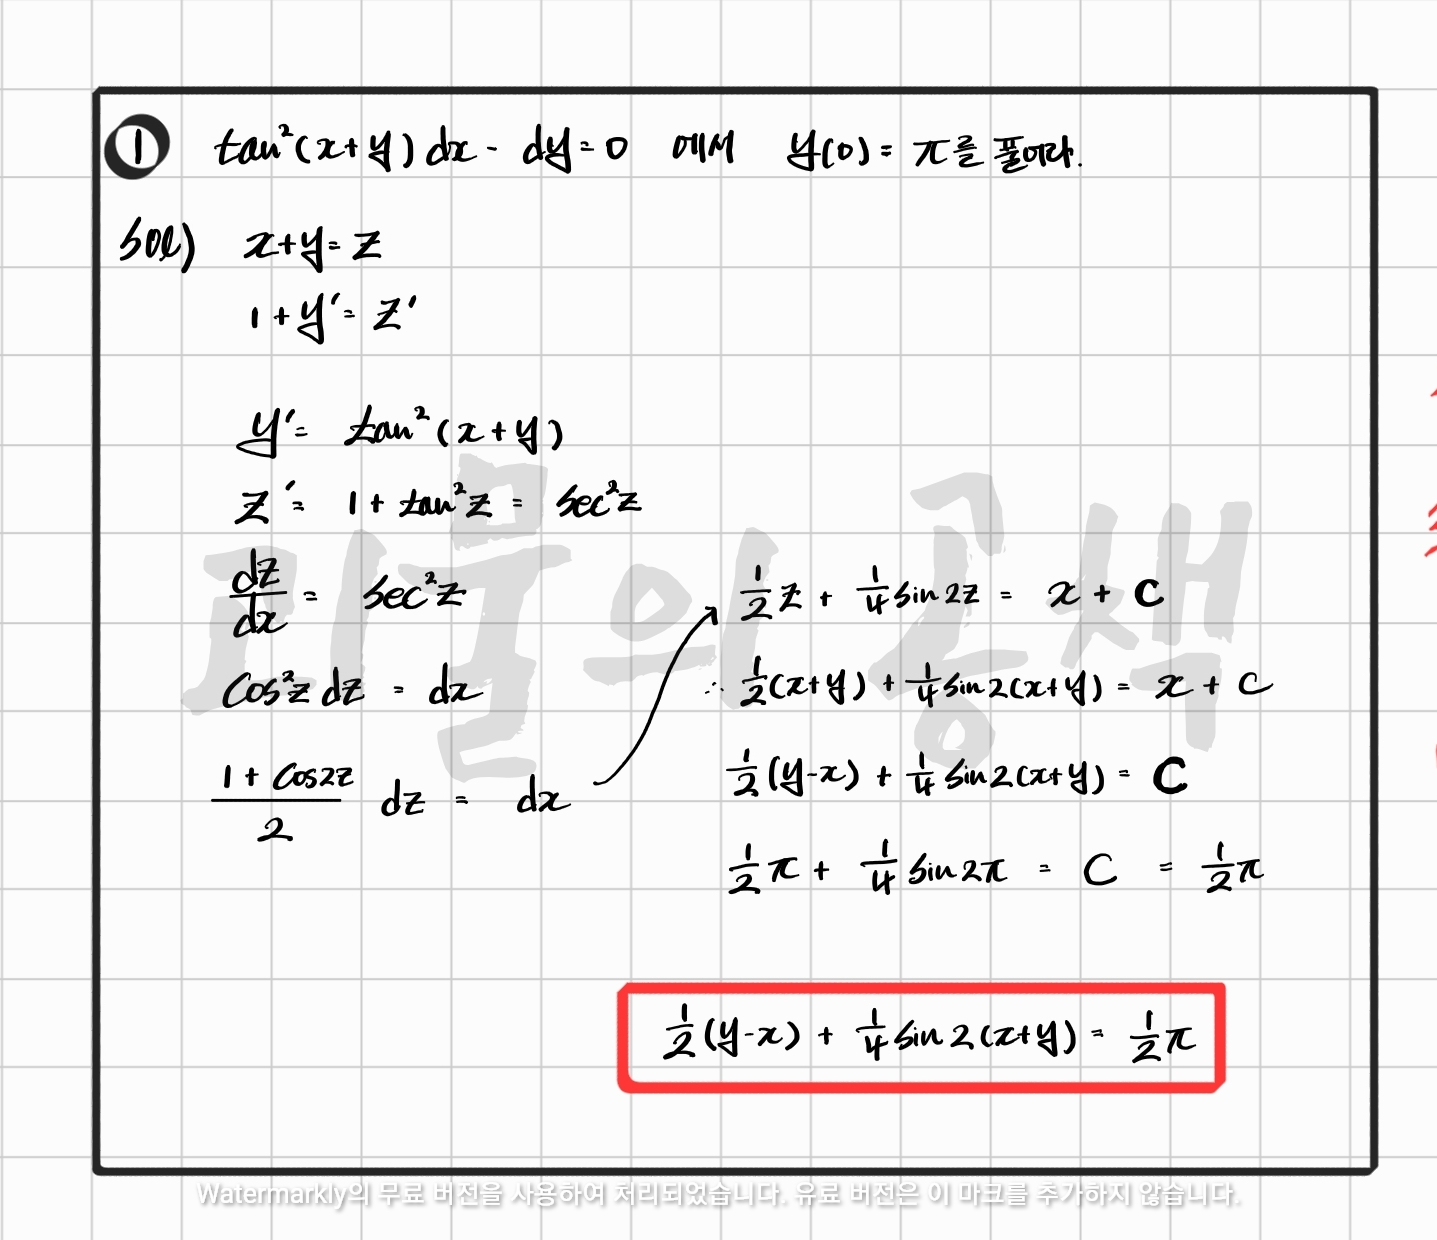 ① tan²(x+y)dx - dy = 0 에서 y(0) = π를 풀어라.
sol) x+y = z
1 + y' = z'
y' = tan²(x+y)
z' = 1 + tan²z = sec²z
dz/dx = sec²z
cos²z dz = dx
(1 + cos2z)/2 dz = dx
1/2 z + 1/4 sin 2z = x + C
∴ 1/2(x+y) + 1/4 sin 2(x+y) = x + C
1/2(y-x) + 1/4 sin 2(x+y) = C
1/2 π + 1/4 sin 2π = C = 1/2 π
1/2(y-x) + 1/4 sin 2(x+y) = 1/2 π
괴물의 공책
Watermarkly의 무료 버전을 사용하여 처리되었습니다. 유료 버전은 이 마크를 추가하지 않습니다.